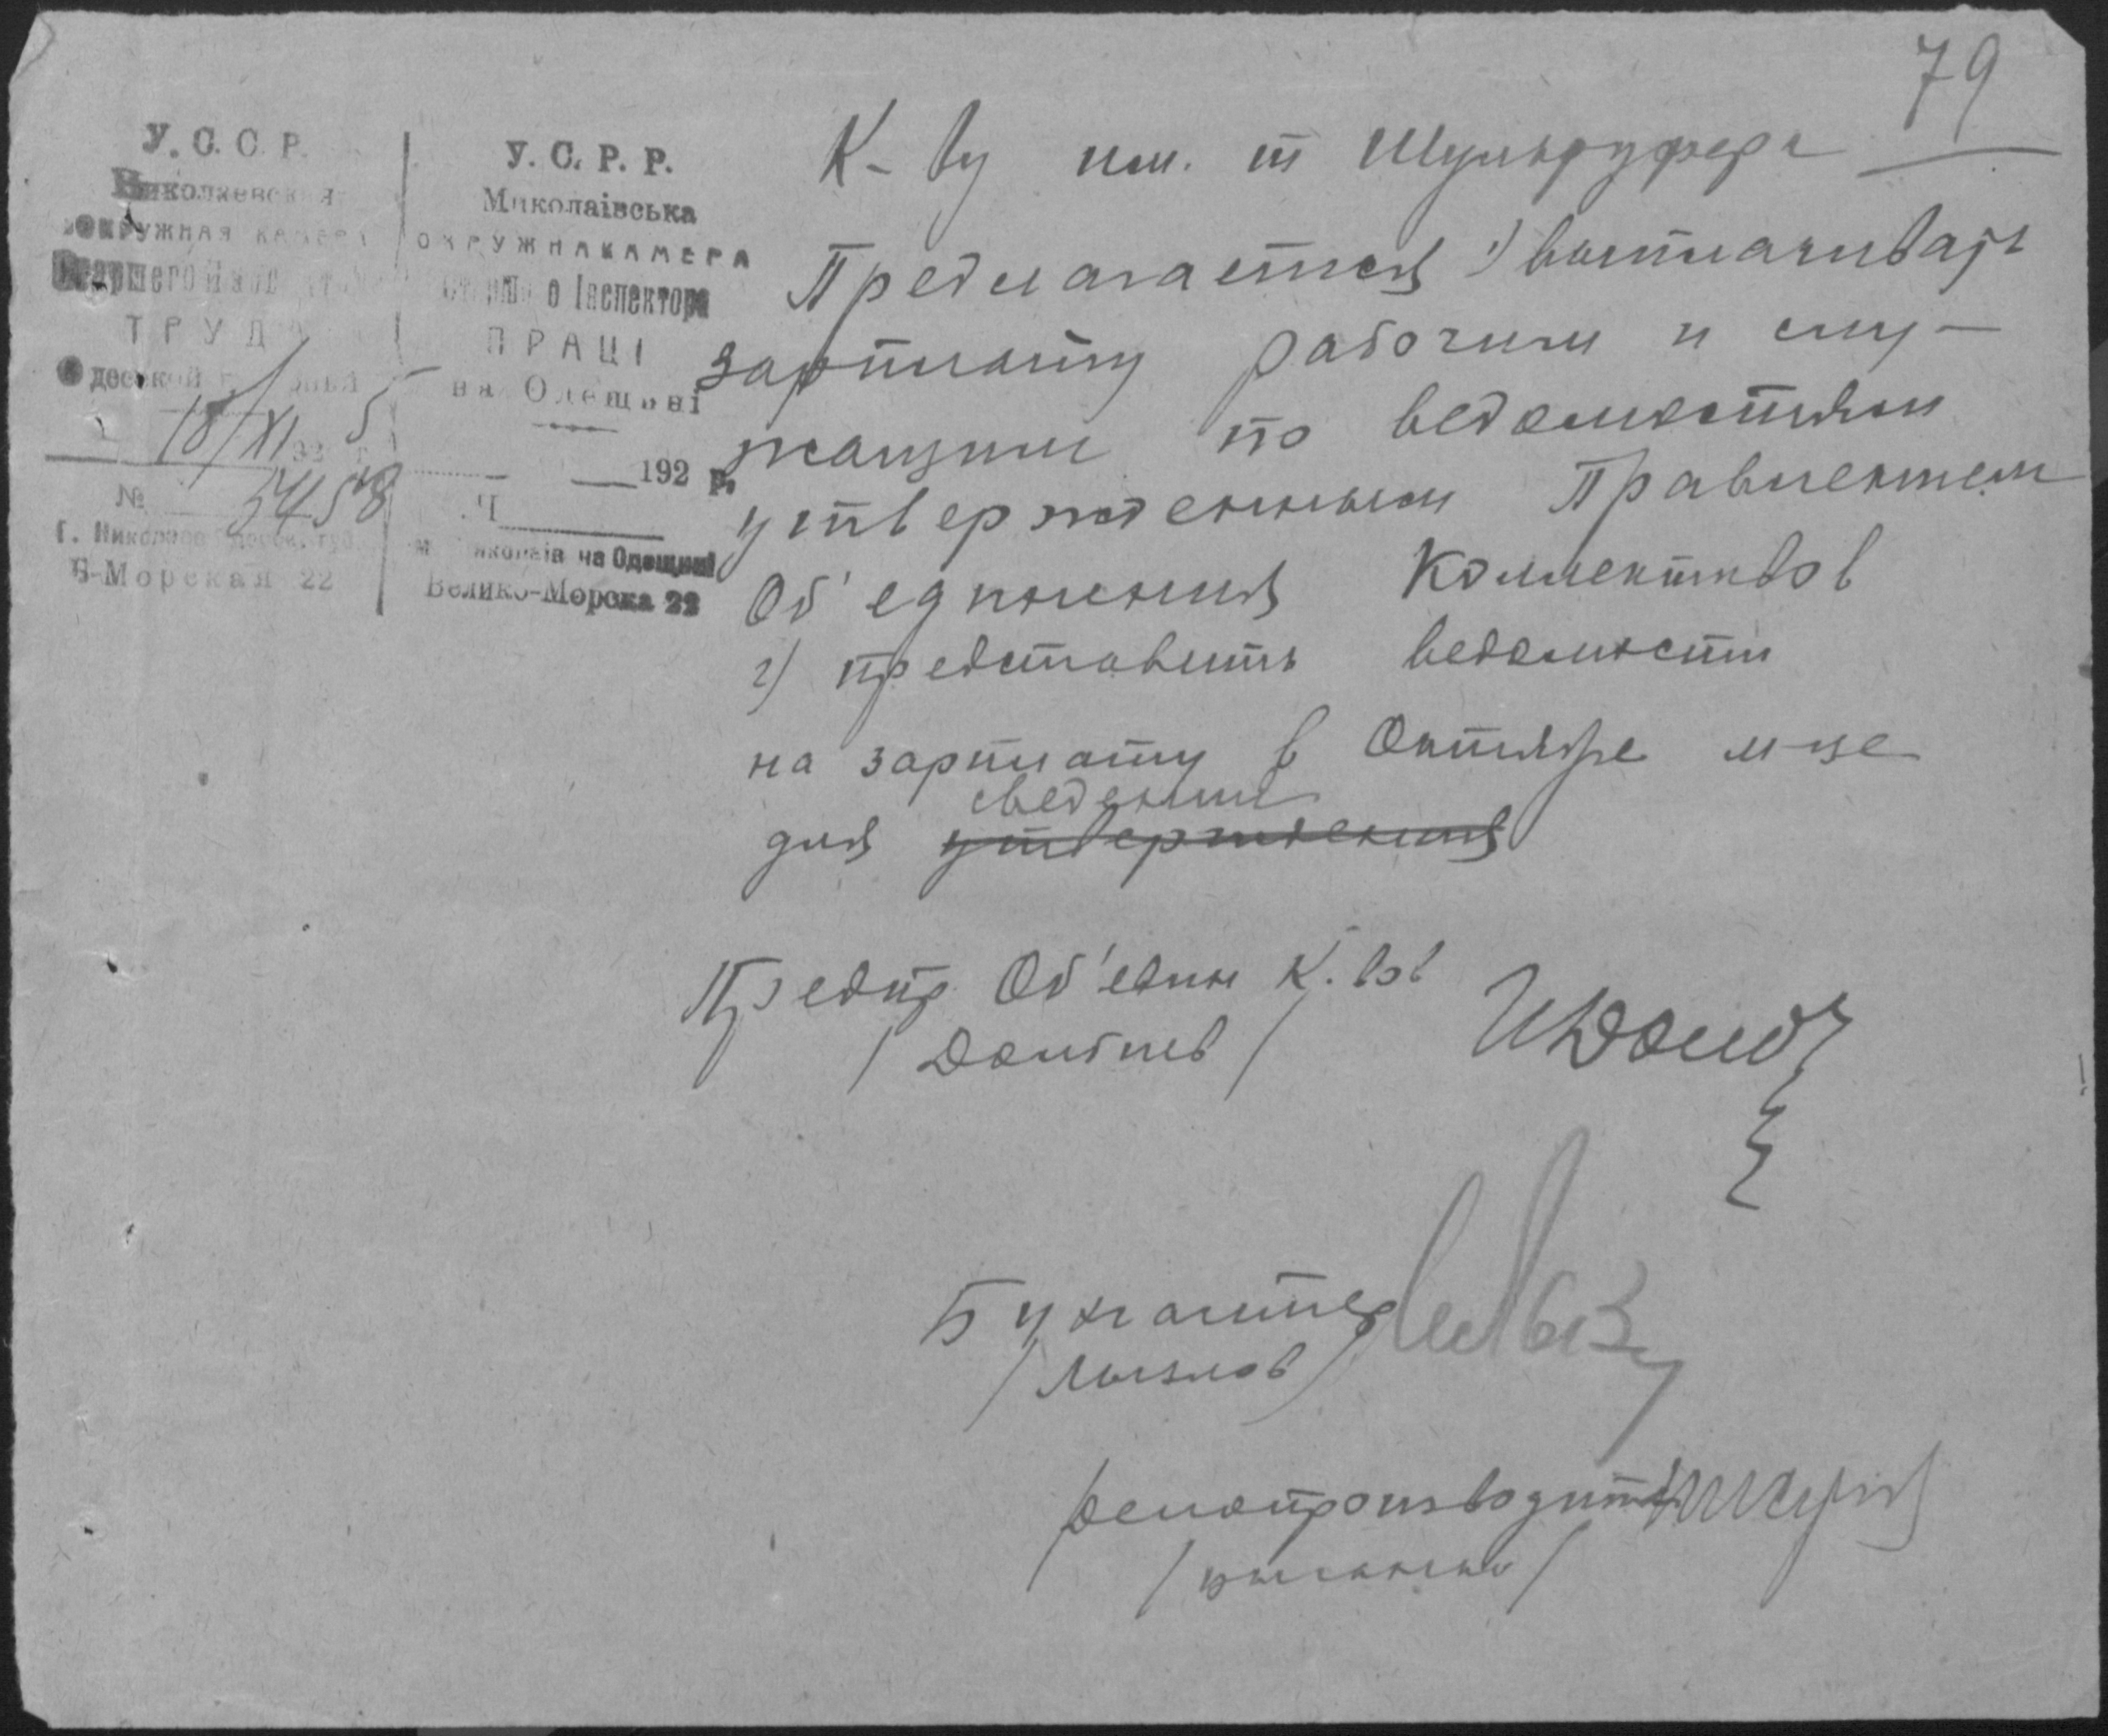 79
У. С. С. Р.
Николаевская
ОКРУЖНАЯ КАМЕРА
Старшего Инспектора
ТРУДА
Одесской губернии
18/XI 192 5 г.
№ 5458
г. Николаев Одесск. губ.
Б-Морская 22
У. С. Р. Р.
Миколаівська
ОКРУЖНА КАМЕРА
Старшого Інспектора
ПРАЦІ
на Одещині
192 р.
Ч
м. Миколаів на Одещині
Велико-Морска 22
К-ву им. т
Предлагается 1) выплачивать
зарплату рабочим и слу-
жащим по ведомостям
утвержденным Правлением
Об'единения Коллективов
2) представить ведомости
на зарплату в Октябре м-це
сведения
для утверждения
Предпр Об'един К.вов
/Домбнев/
Бухгалтер
/Лызлов/
Делопроизводит